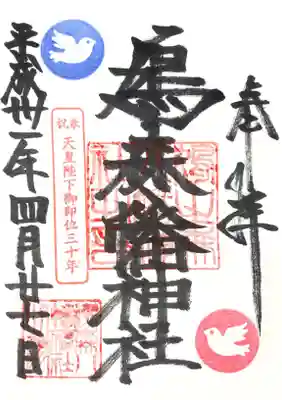 奉拝
鳩森八幡神社
奉祝 天皇陛下御即位三十年
平成卅一年四月廿七日